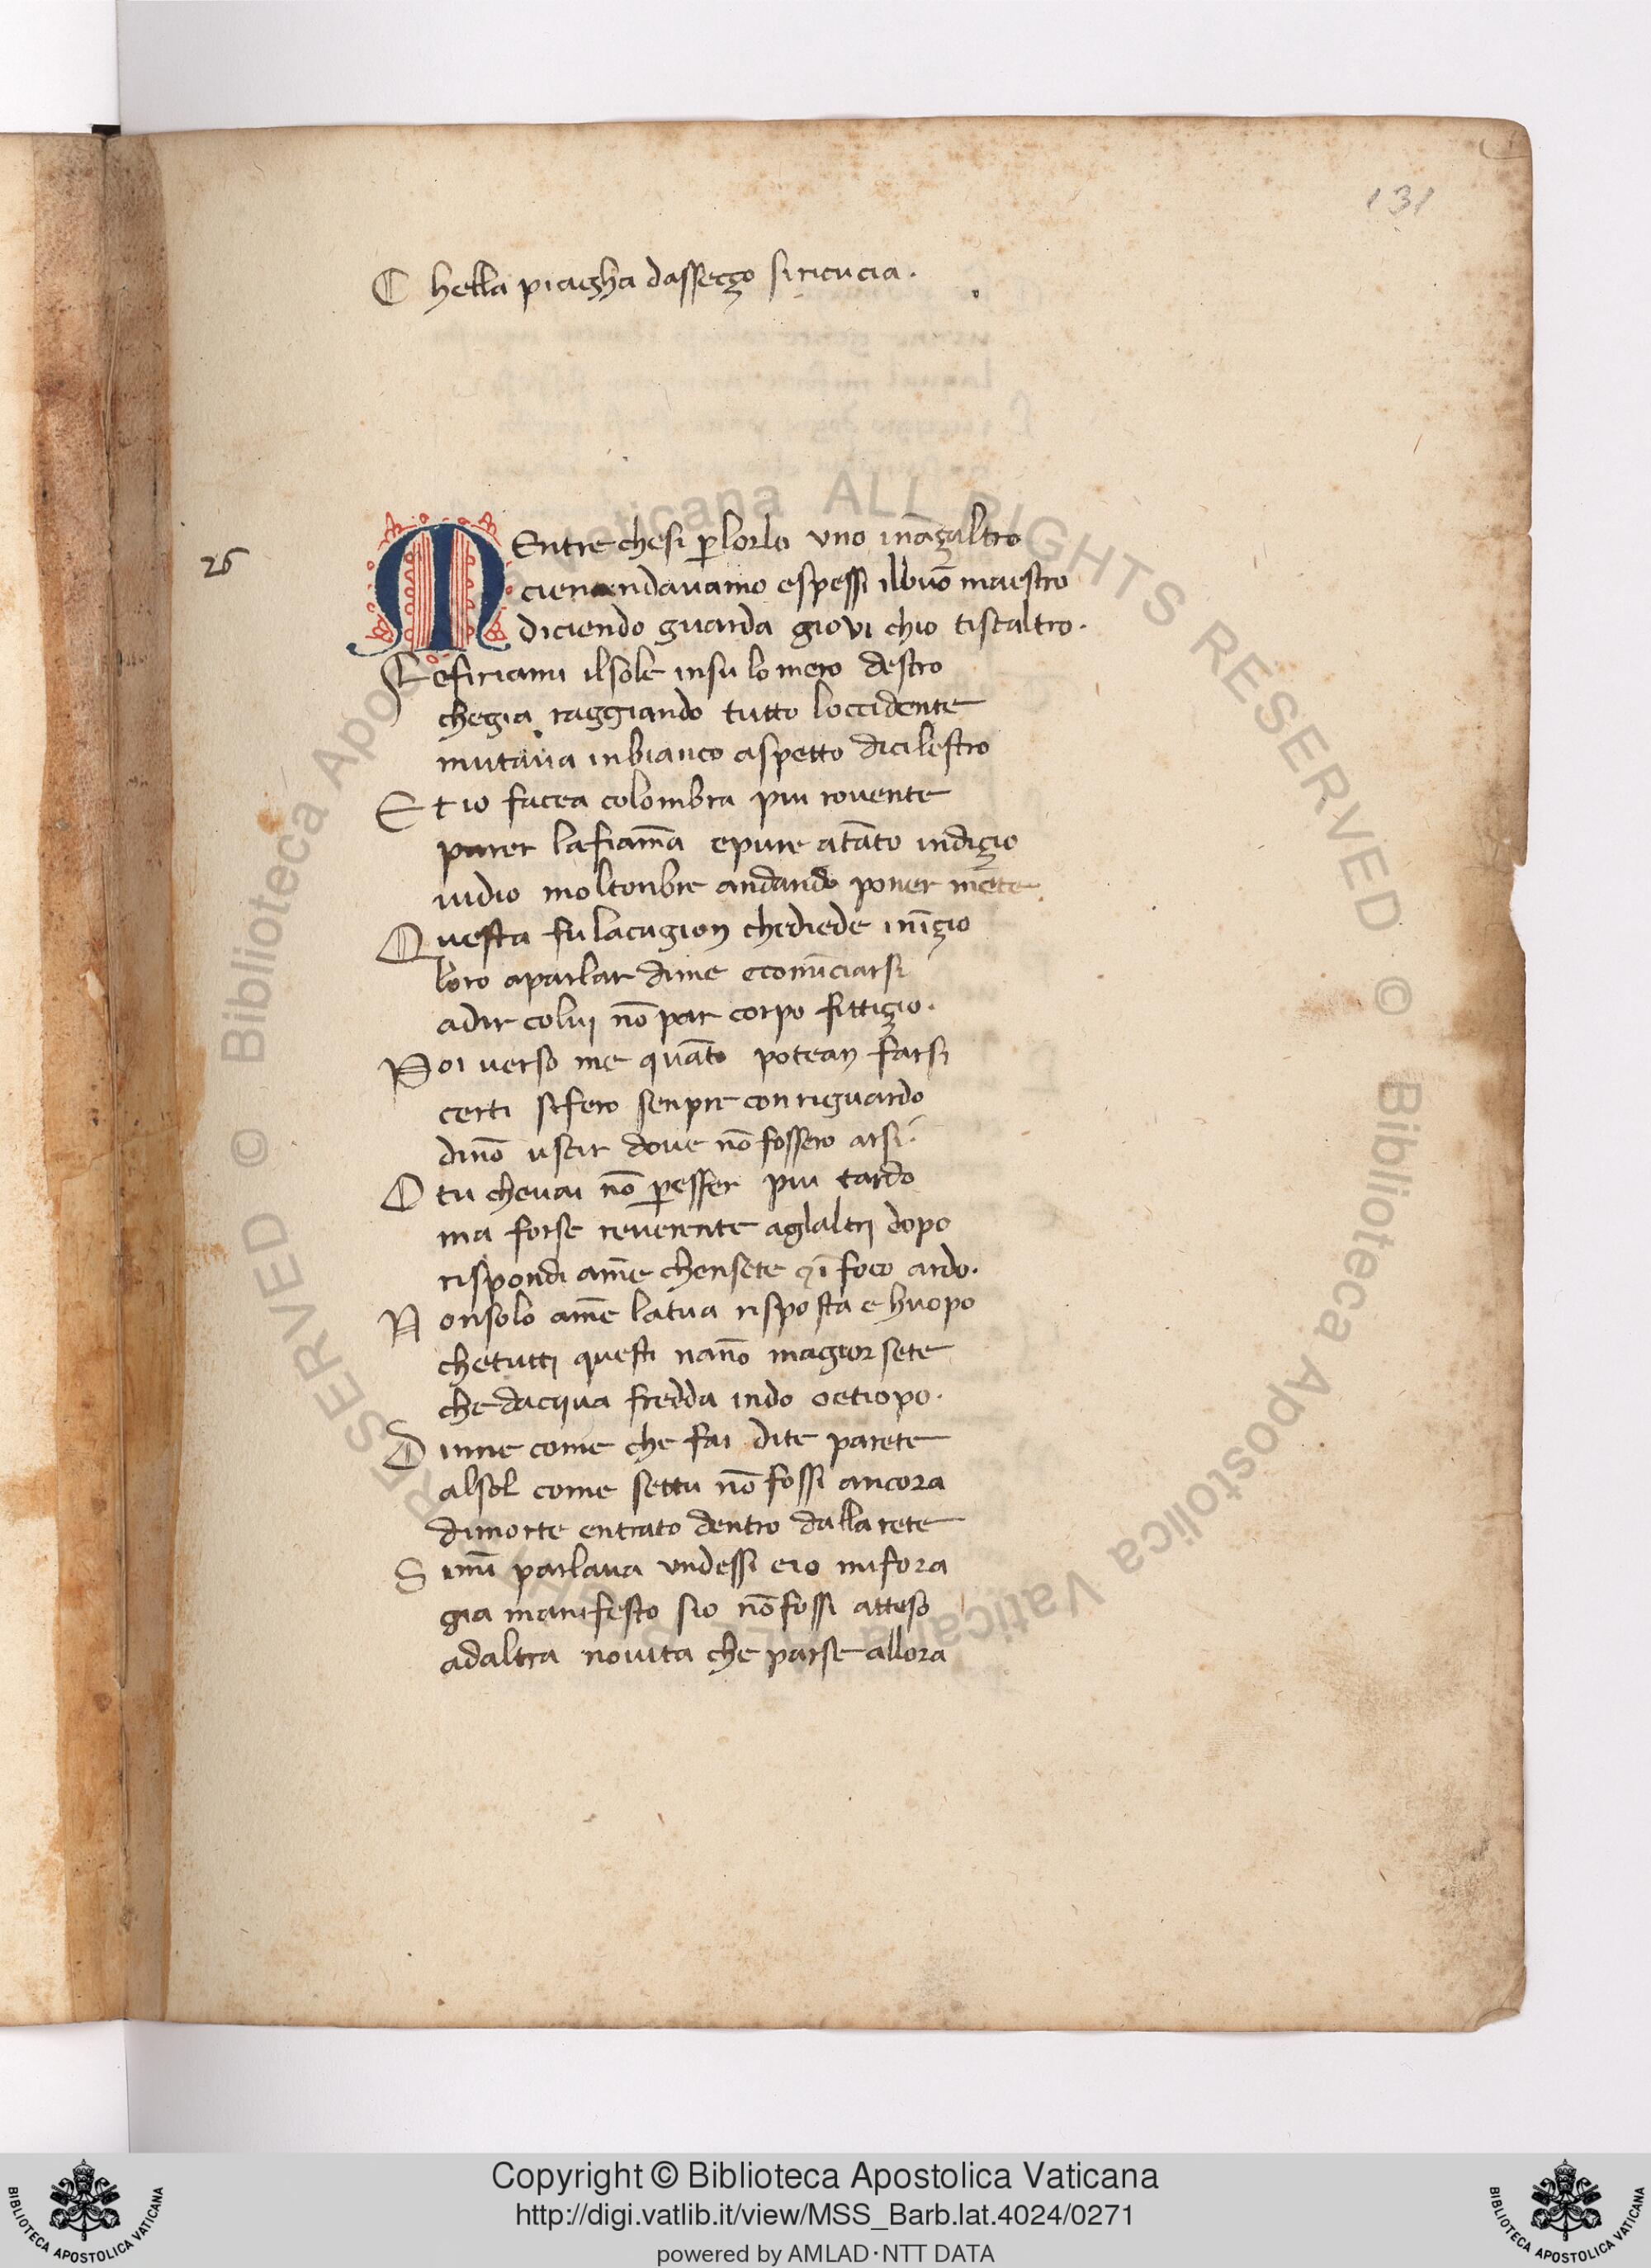 131
C hella piagha dassezo si ricucia.
26
MEntre chesi p̱ lorlo uno ināzaltro
cienandauamo espessi ilbuō maestro
diciendo guarda giovi chio tiscaltro.
Fefiriami ilsole insu lomero destro
chegia raggiando tutto loccidente
mutaua inbianco aspetto dicilestro
E tio facea colombra piu rouente
parer lafiam̄a epure atāto indizio
uidio moltonbre andando poner mēte
Questa fu lacagion chediede inizio
loro aparlar dime ecomīciarsi
adir colui nō par corpo fittizio.
Poi verso me quāto potean farsi
certi sifero senpre con riguardo
dinō uscir doue nō fossero arsi.
O tu cheuai nō p̱esser piu tardo
ma forse reuerente aglaltri dopo
rispondi am̄e chensete ⁊ ī foco ardo.
N onsolo am̄e latua risposta e huopo
chetutti questi nan̄o magior sete
che dacqua fredda indo oetiopo.
D inne come che fai dite parete
alsol come settu nō fossi ancora
dimorte entrato dentro dalla rete
S imī parlaua undessi eio mifora
gia manifesto sio nō fossi atteso
adaltra nouita che parse allora
© Biblioteca Apostolica Vaticana ALL RIGHTS RESERVED © Biblioteca Apostolica Vaticana ALL RIGHTS RESERVED
Copyright © Biblioteca Apostolica Vaticana
http://digi.vatlib.it/view/MSS_Barb.lat.4024/0271
powered by AMLAD·NTT DATA
BIBLIOTECA APOSTOLICA VATICANA
BIBLIOTECA APOSTOLICA VATICANA